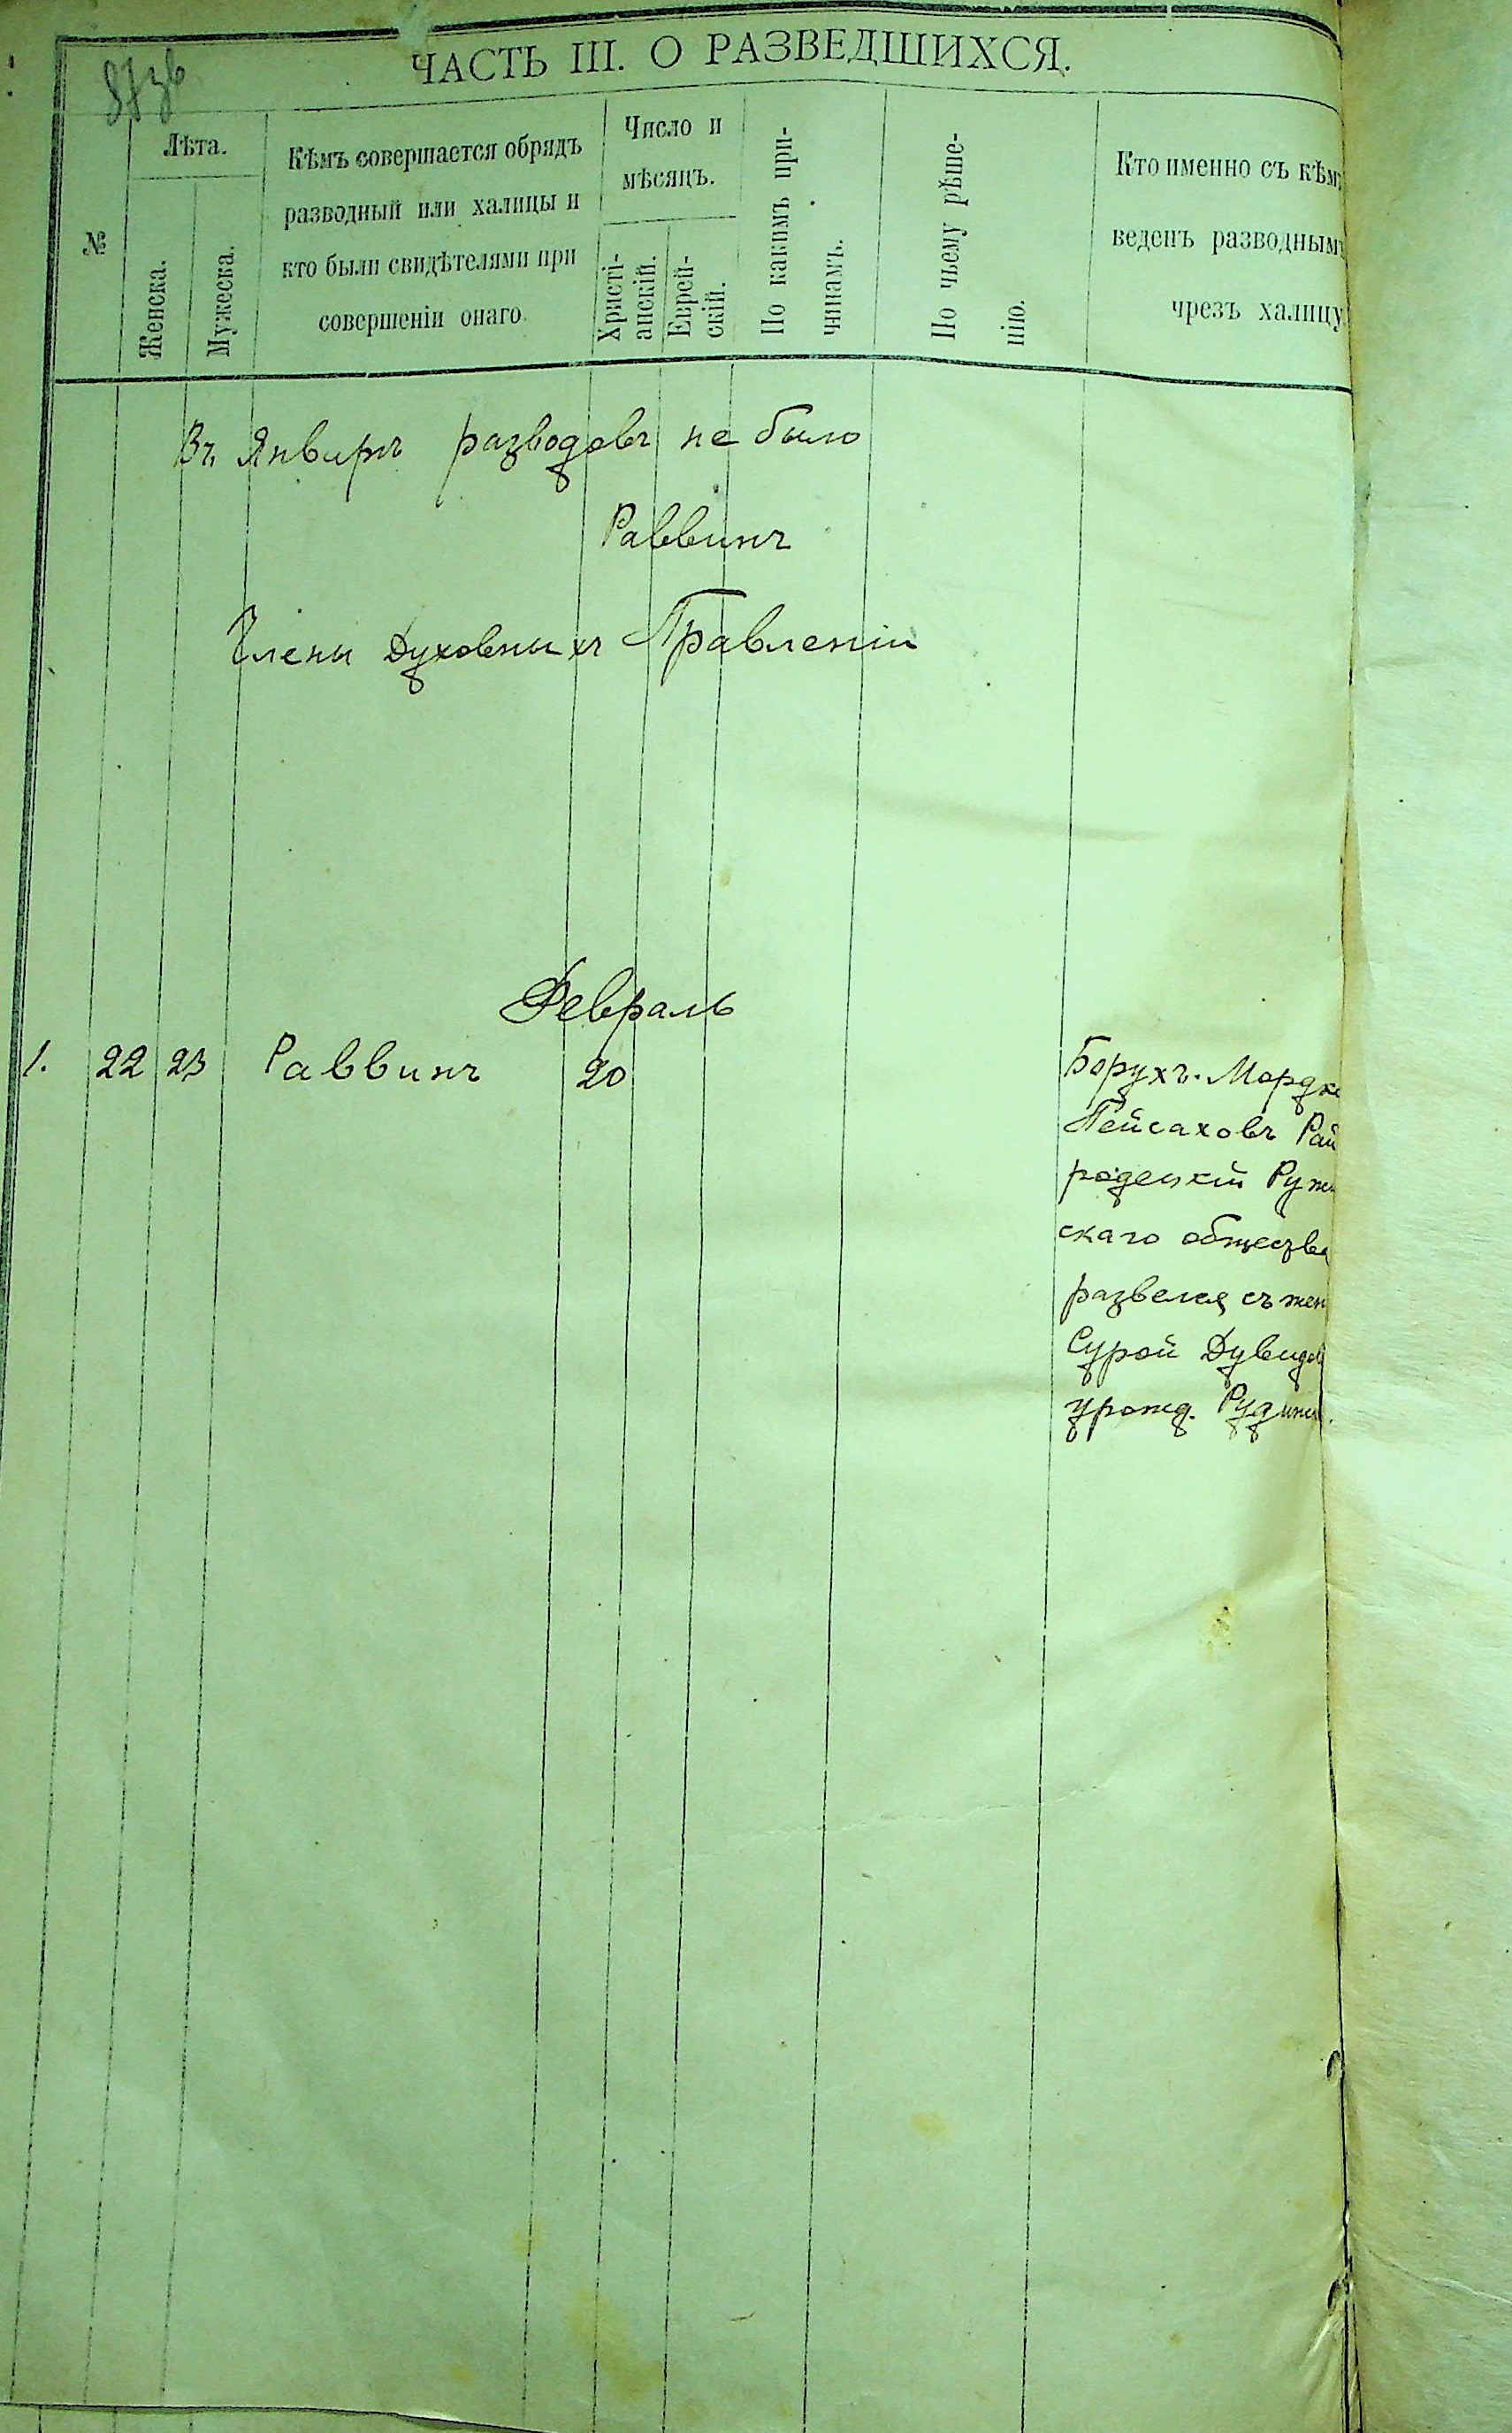 ЧАСТЬ III. О РАЗВЕДШИХСЯ.
№
Лѣта.
Женска.
Мужеска.
Кѣмъ совершается обрядъ
разводный или халицы и
кто были свидѣтелями при
совершеніи онаго.
Число и
мѣсяцъ.
Христі-
анскій.
Еврей-
скій.
По какимъ при-
чинамъ.
По чьему рѣше-
нію.
Кто именно съ кѣмъ
веденъ разводнымъ
чрезъ халицу
Въ Январѣ разводовъ не было
Раввинъ
Члены Духовныхъ Правленіи
Февраль
1. 22 23 Раввинъ 20
Борухъ-Мордко
Пейсаховъ Рай
родецкій Руж
скаго общества
развелся съ жен
Сурой Дувидов
урожд.